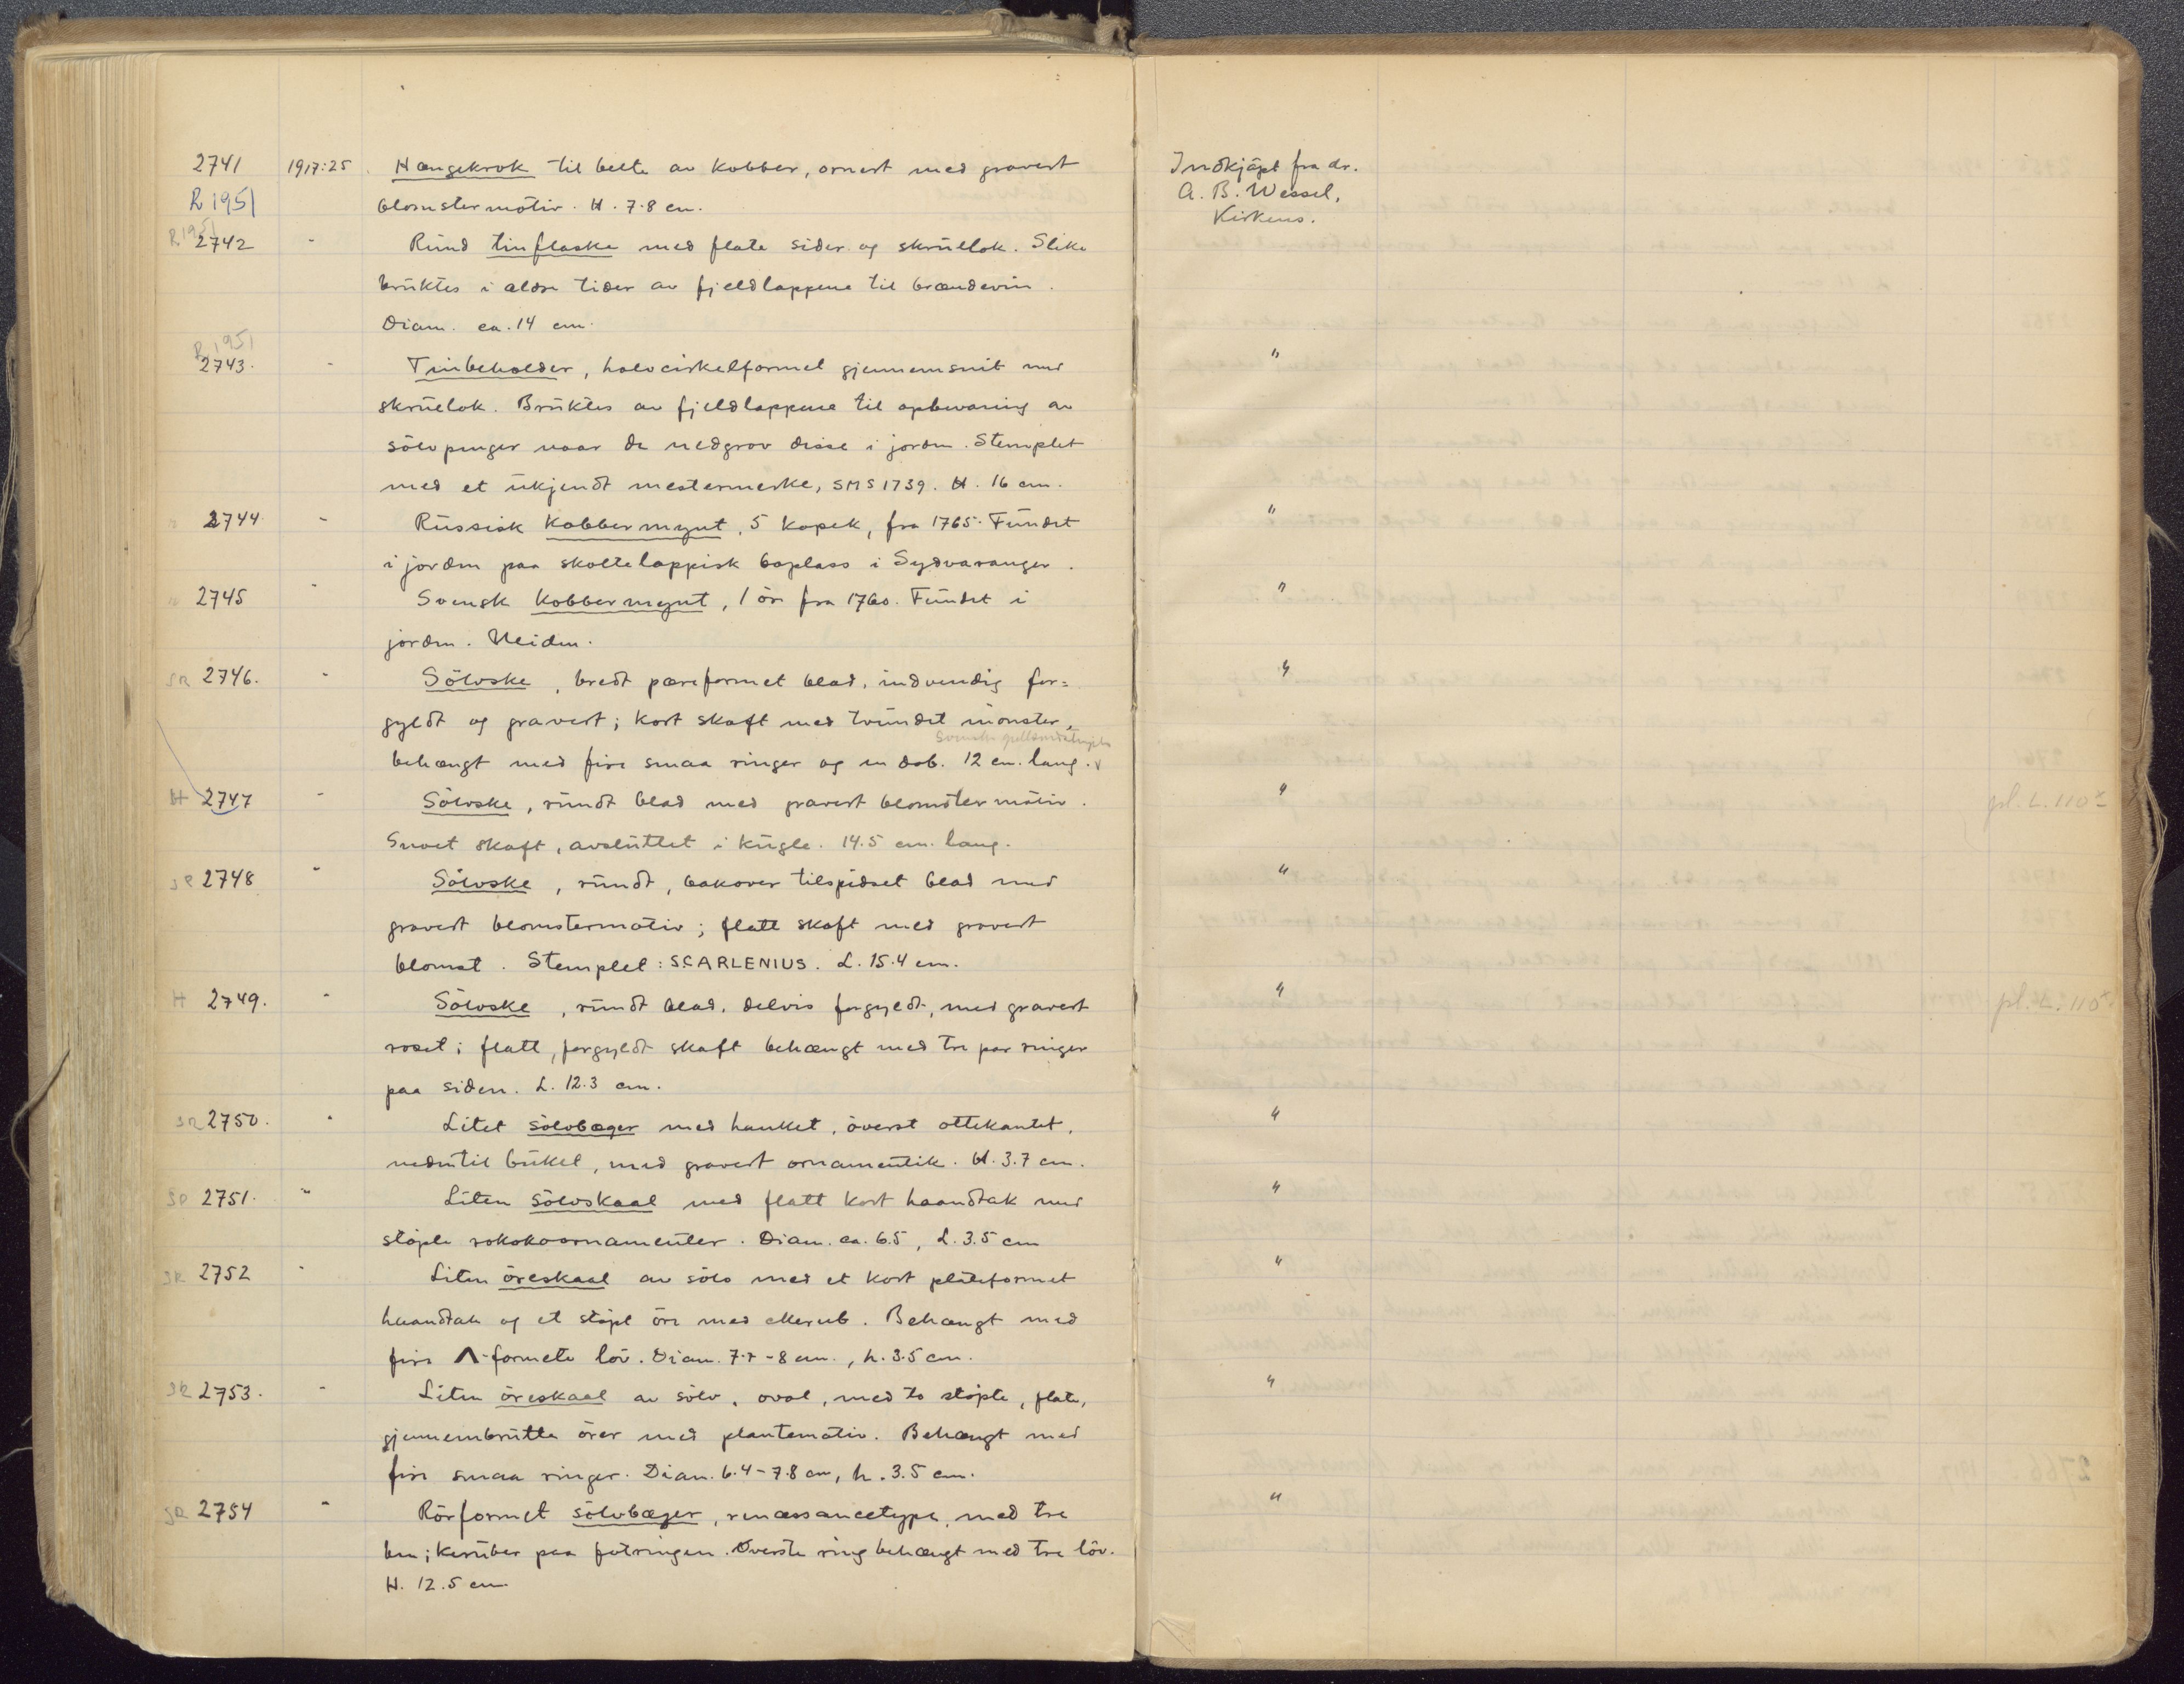 2741 1917:25 Hængekrok til belte av kobber, ornert med gravert
R 1951 blomstermotiv. H. 7.8 cm.
R 1951
2742 " Rund tinflaske med flate sider og skruelok. Slike
bruktes i ældre tider av fjeldlappene til brændevin.
Diam. ca. 14 cm.
R 1951
2743. " Tinbeholder, halvcirkelformet gjennemsnit med
skruelok. Bruktes av fjeldlappene til opbevaring av
sölvpenger naar de nedgrov disse i jorden. Stemplet
med et ukjendt mestermerke, SMS 1739. H. 16 cm.
2744 " Russisk kobbermynt, 5 kopek, fra 1765. Fundet
i jorden paa skoltelappisk boplass i Sydvaranger.
2745 " Svensk kobbermynt, 1 ör fra 1760. Fundet i
jorden. Neiden.
SR 2746. " Sölvske, bredt pæreformet blad, indvendig for=
gyldt og gravert; kort skaft med tvundet mönster,
Svensk gullsmedstempler
behængt med fire smaa ringer og en dob. 12 cm. lang. v
H 2747 " Sölvske, rundt blad med gravert blomstermotiv.
Snoet skaft, avsluttet i kugle. 14.5 cm. lang.
SR 2748 " Sölvske, rundt, bakover tilspidset blad med
gravert blomstermotiv; flatt skaft med gravert
blomst. Stemplet: S.CARLENIUS. L. 15.4 cm.
H 2749. " Sölvske, rundt blad, delvis forgyldt, med gravert
roset; flatt, forgyldt skaft behængt med tre par ringer
paa siden. L. 12.3 cm.
SR 2750. " Litet sölvbæger med hanket, överst ottekantet,
nedentil buket, med gravert ornamentik. H. 3.7 cm.
SR 2751. " Liten sölvskaal med flatt kort haandtak med
stöpte rokokoornamenter. Diam. ca. 6.5, L. 3.5 cm
SR 2752 " Liten öreskaal av sölv med et kort plateformet
haandtak og et stöpt öre med kerub. Behængt med
fire Λ-formete löv. Diam. 7.7-8 cm., h. 3.5 cm.
SR 2753. " Liten öreskaal av sölv, oval, med to stöpte, flate,
gjennembrutte örer med plantemotiv. Behængt med
fire smaa ringer. Diam. 6.4-7.8 cm, h. 3.5 cm.
SR 2754 " Rörformet sölvbæger, renæssancetype, med tre
ben; keruber paa fotringen. Överste ring behængt med tre löv.
H. 12.5 cm
Indkjöpt fra dr.
A. B. Wessel,
Kirkenes.
"
"
"
"
" pl. L. 110
"
" pl. L. 110
"
"
"
"
"